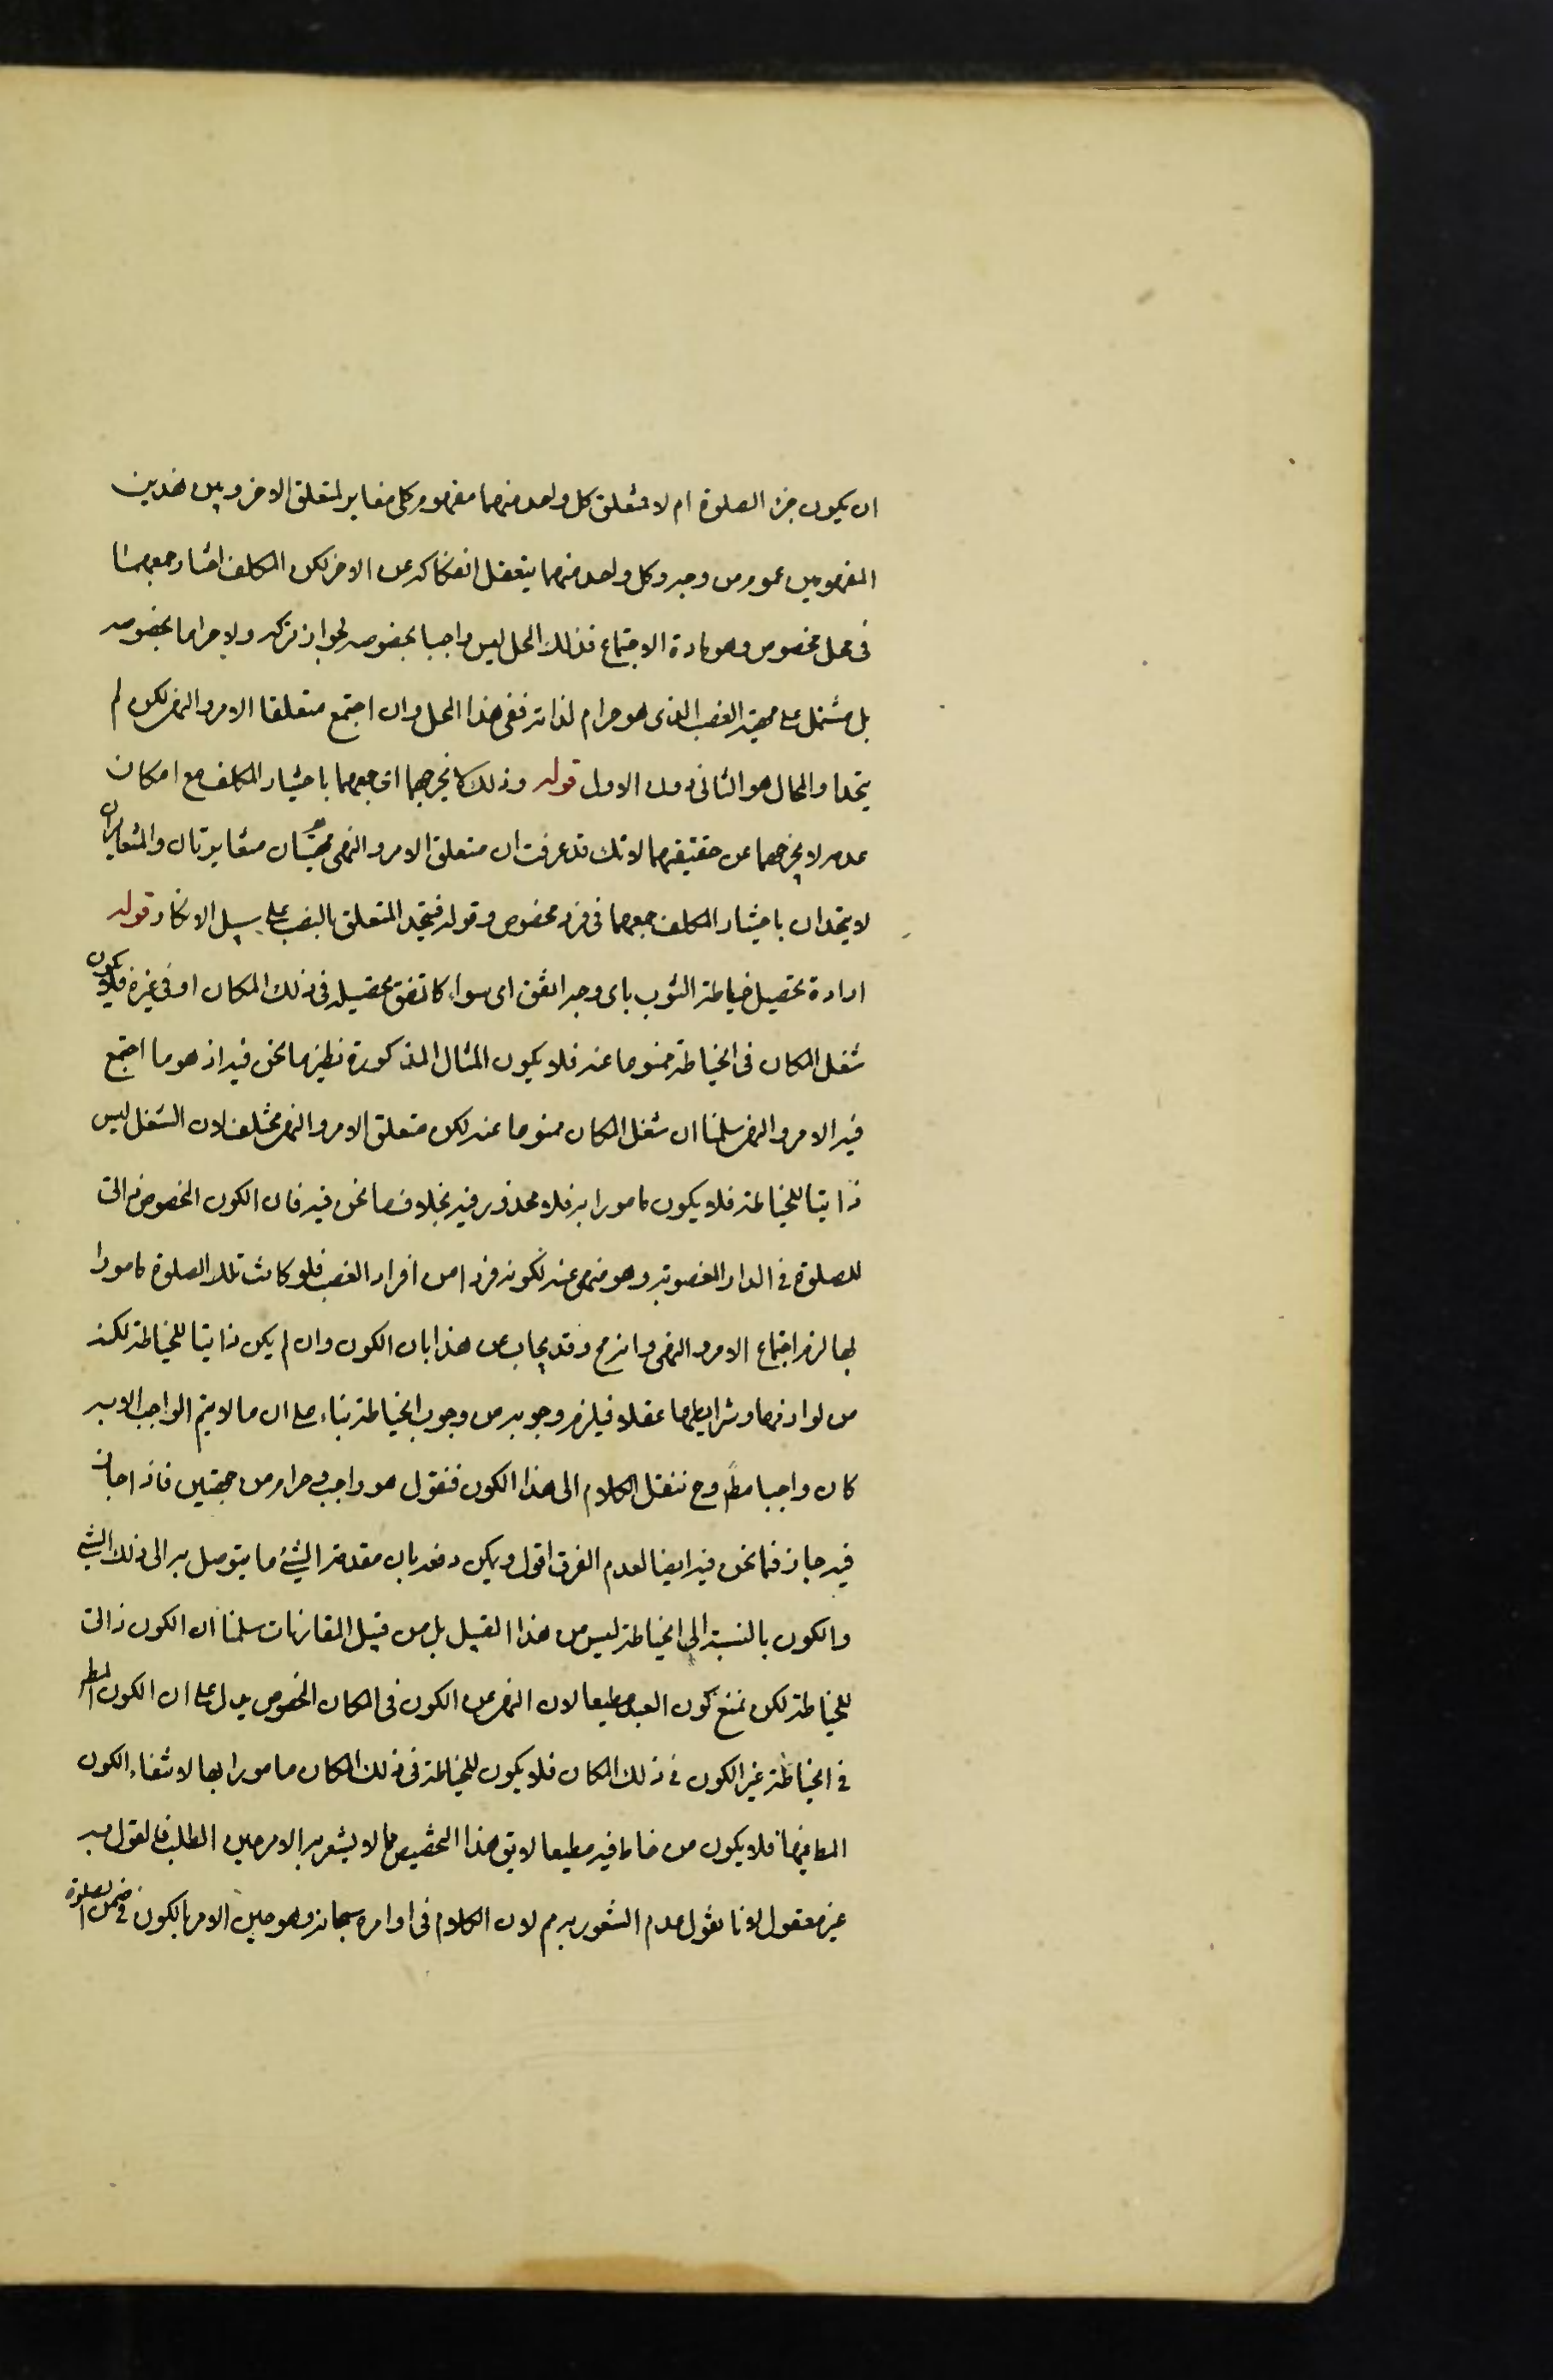 ان يكون جزء الصلوة ام لا فمتعلق كل واحد منهما مفهوم كلى مغاير لمتعلق الاخر وبين هذين
المفهومين عموم من وجه وكل واحد منهما يتعقل انفكاكه عن الاخر لكن المكلف اختار جمعهما
فى محل مخصوص وهو مادة الاجتماع فذلك المحل ليس واجبا بخصوصه لجواز تركه ولا حراما بخصوصه
بل مشتمل على مهية الغصب الذى هو حرام لذاته ففى هذا المحل وان اجتمع متعلقا الامر والنهى لكن لم
يتحدا والمحال هو الثانى دون الاول قوله وذلك لا يخرجهما اى جمعهما باختيار المكلف مع امكان
عدمه لا يخرجهما عن حقيقتهما لانك قد عرفت ان متعلق الامر والنهى مهيتان متغايرتان والمتغايران
لا يتحدان باختيار المكلف جمعهما فى فرد مخصوص وقوله فيتحد المتعلق بالنصب على سبيل الانكار قوله
ارادة تحصيل خياطة الثوب باى وجه اتفق اى سواء كا تفق تحصيله فى ذلك المكان او فى غيره فلا يكون
شغل المكان فى الخياطة ممنوعا عنه فلا يكون المثال المذكورة نظير ما نحن فيه اذ هو ما اجتمع
فيه الامر والنهى سلمنا ان شغل المكان ممنوعا عنه لكن متعلق الامر والنهى مختلف لان الشغل ليس
ذاتيا للخياطة فلا يكون مامورا به فلا محذور فيه بخلاف ما نحن فيه فان الكون المخصوص ذاتى
للصلوة فى الدار الغصوبة وهو منهى عنه لكونه فردا من افراد الغصب فلو كانت تلك الصلوة مامورا
بها لزم اجتماع الامر والنهى وانه مح وقد يجاب عن هذا بان الكون وان لم يكن ذاتيا للخياطة لكنه
من لوازمها وشرايطها عقلا فيلزم وجوبه من وجوب الخياطة بناء على ان ما لا يتم الواجب الا به
كان واجبا مط وح ننقل الكلام الى هذا الكون فنقول هو واجب وحرام من جهتين فاذا جاز
فيه جاز فيما نحن فيه ايضا لعدم الفرق اقول ويمكن دفعه بان مقدمة الشئ ما يتوصل به الى ذلك الشئ
والكون بالنسبة الى الخياطة ليس من هذا القبيل بل من قبيل المقارنات سلمنا ان الكون ذاتى
للخياطة لكن نمنع كون العبد مطيعا لان النهى عن الكون فى المكان المخصوص يدل على ان الكون المط
فى الخياطة غير الكون فى ذلك المكان فلا يكون للخياطة فى ذلك المكان مامورا بها لانتفاء الكون
المط فيها فلا يكون من خاط فيه مطيعا لا يق هذا التخصيص مما لا يشعر به الامر حين الطلب فالقول به
غير معقول لانا نقول عدم الشعور به مم لان الكلام فى اوامره سبحانه وهو حين الامر بالكون فى ضمن الصلوة